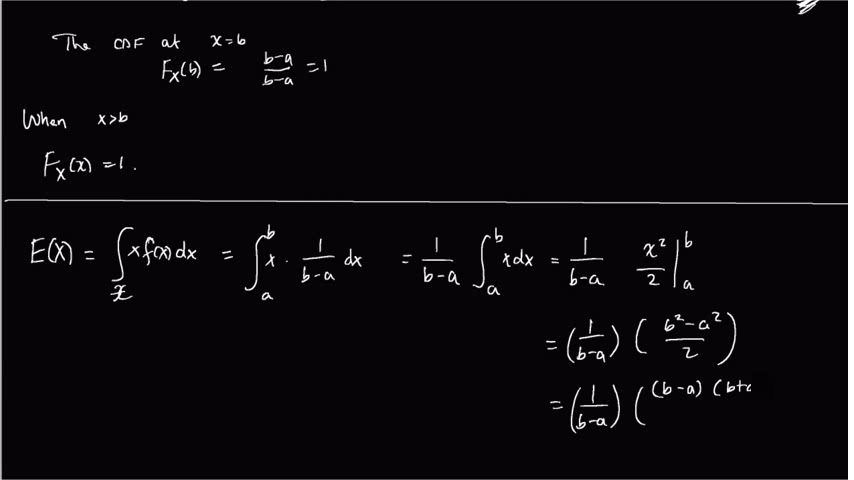 The CDF at x=b
F_X(b) = \frac{b-a}{b-a} = 1
When x>b
F_X(x) = 1.
E(X) = \int_{\mathcal{X}} x f(x) dx = \int_a^b x \cdot \frac{1}{b-a} dx = \frac{1}{b-a} \int_a^b x dx = \frac{1}{b-a} \frac{x^2}{2} |_a^b
= (\frac{1}{b-a}) (\frac{b^2-a^2}{2})
= (\frac{1}{b-a}) ( (b-a) (b+a